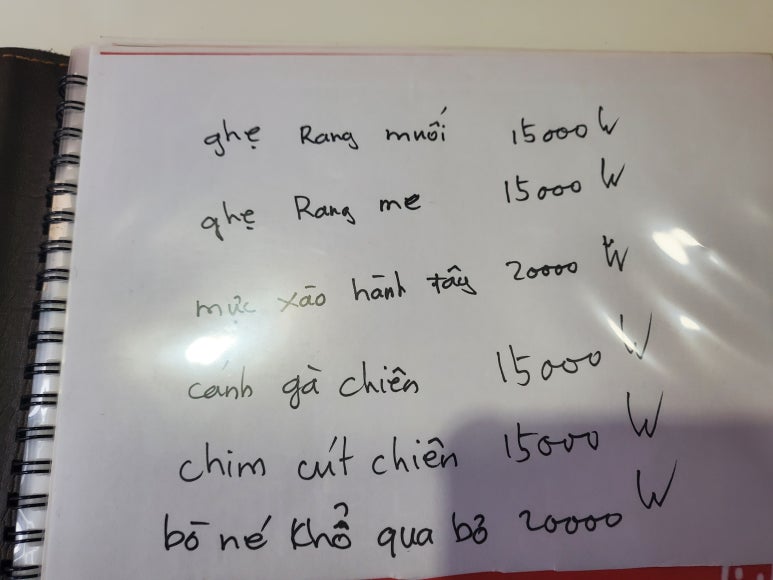 ghẹ Rang muối 15000 W
ghẹ Rang me 15000 W
mực xão hành tây 20000 W
cánh gà chiên 15000 W
chim cút chiên 15000 W
bō né khổ qua bỏ 20000 W